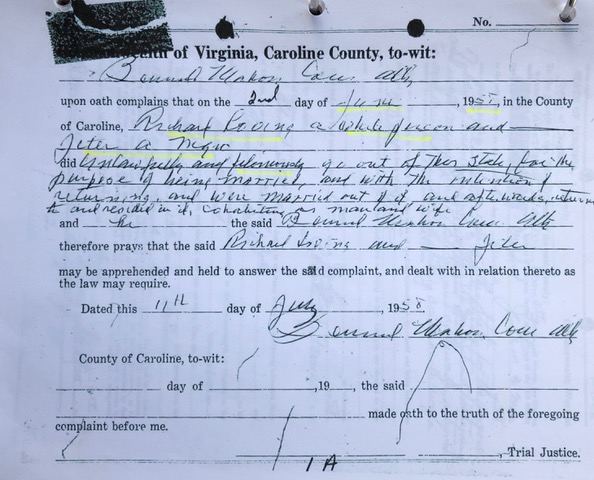 No.
th of Virginia, Caroline County, to-wit:
Bernard Mahon Com Atty
upon oath complains that on the 2nd day of June, 1958, in the County
of Caroline, Richard Loving a white person and
Jeter a Negro
did unlawfully and feloniously go out of this State, for the
purpose of being married, and with the intention of
returning, and were married out of it and afterwards return
to and resided in it, cohabiting as man and wife
and he the said Bernard Mahon Com Atty
therefore prays that the said Richard Loving and Jeter
may be apprehended and held to answer the said complaint, and dealt with in relation thereto as
the law may require.
Dated this 11th day of July, 1958
Bernard Mahon Com Atty
County of Caroline, to-wit:
day of ,19 , the said
made oath to the truth of the foregoing
complaint before me.
, Trial Justice.
1 A